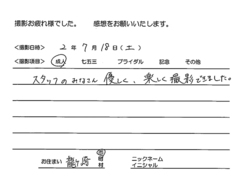 撮影お疲れ様でした。 感想をお願いいたします。
<撮影日時> 2 年 7 月 18 日 (土)
<撮影項目> 成人 七五三 ブライダル 記念 その他
スタッフのみなさん 優しく、楽しく撮影できました。
お住まい 龍ヶ崎 市 村 ニックネーム イニシャル